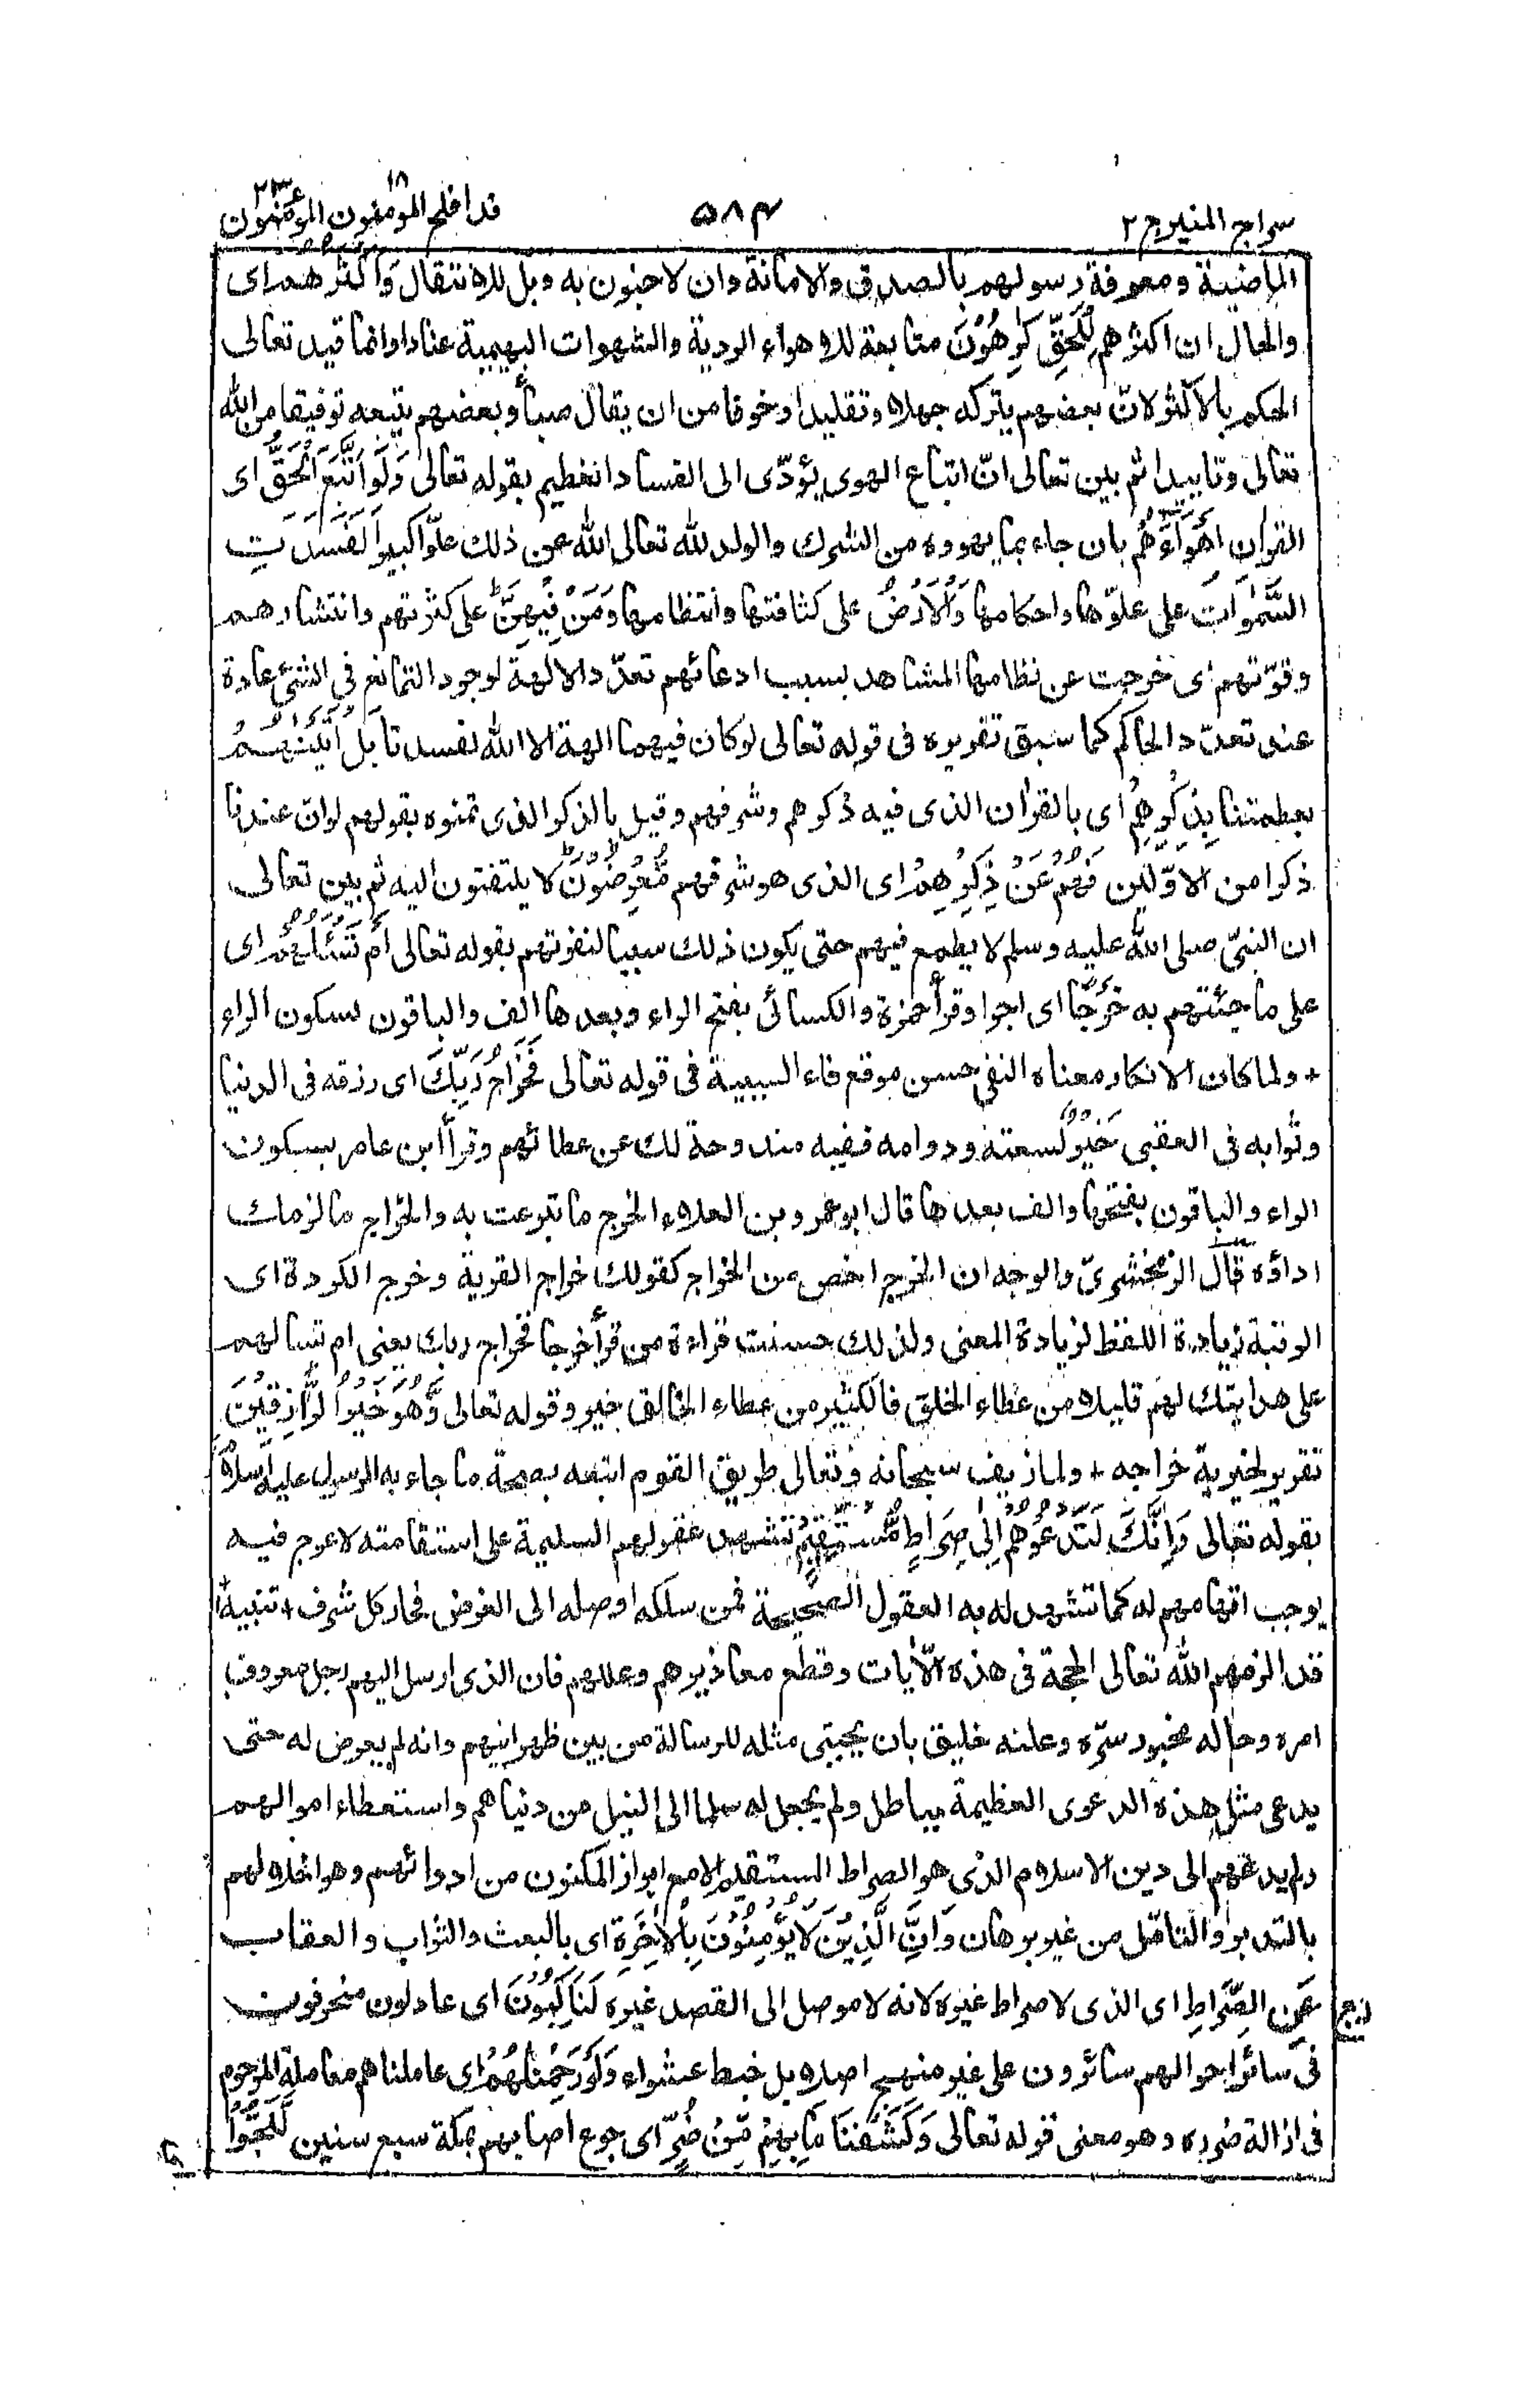 سراج المنیر ج ٢
٥٨٤
قد افلح المؤمنون ١٨ المؤمنون ٢٣
الماضية ومعرفة رسولهم بالصدق والامانة وان لا جنون به وبل للانتقال وَاَكْثَرُهُمْ اى
والحال ان اكثرهم لِلْحَقِّ كٰرِهُوْنَ متابعة للاهواء الردية والشهوات البهيمية عنادا وانما قيد تعالى
الحكم بالاكثر لانّ بعضهم يتركه جهلا وتقليدا وخوفا من ان يقال صبأ وبعضهم يتبعه توفيقا من الله
تعالى وتاييدا ثم بين تعالى انّ اتباع الهوى يؤدّى الى الفساد العظيم بقوله تعالى وَلَوِ اتَّبَعَ الْحَقُّ اى
القران اَهْوَآءَهُمْ بان جاء بما يهووه من الشرك والولد لله تعالى الله عن ذلك علوّا كبيرا لَفَسَدَتِ
السَّمٰوَاتُ على علوّها واحكامها وَالْاَرْضُ على كثافتها وانتظامها وَمَنْ فِيْهِنَّ على كثرتهم وانتشارهم
وقوّتهم اى خرجت عن نظامها المشاهد بسبب ادعائهم تعدّد الالهة لوجود التمانع فى الشئ عادة
عند تعدّد الحاكم كما سبق تقريره فى قوله تعالى لوكان فيهما الهة الا الله لفسدتا بَلْ اَتَيْنٰهُمْ
بعظمتنا بِذِكْرِهِمْ اى بالقران الذى فيه ذكرهم وشرفهم وقيل بالذكر الذى تمنوه بقولهم لوانّ عندنا
ذكرا من الاوّلين فَهُمْ عَنْ ذِكْرِهِمْ اى الذى هو شرفهم مُّعْرِضُوْنَ لا يلتفتون اليه ثم بين تعالى
ان النبىّ صلى الله عليه وسلم لا يطمع فيهم حتى يكون ذلك سببا لنفرتهم بقوله تعالى اَمْ تَسْئَلُهُمْ اى
على ما جئتهم به خَرْجًا اى اجرا وقرأ حمزة والكسائى بفتح الراء وبعدها الف والباقون بسكون الراء
+ ولما كان الانكار معناه النفى حسن موقع فاء السببية فى قوله تعالى فَخَرَاجُ رَبِّكَ اى رزقه فى الدنيا
وثوابه فى العقبى خَيْرٌ لسعته ودوامه ففيه مندوحة لك عن عطائهم وقرأ ابن عامر بسكون
الراء والباقون بفتحها والف بعدها قال ابو عمرو بن العلاء الخرج ما تبرعت به والخراج ما لزمك
اداؤه قال الزمخشرىّ والوجه ان الخرج اخص من الخراج كقولك خراج القرية وخرج الكردة اى
الرقبة زيادة اللفظ لزيادة المعنى ولذلك حسنت قراءة من قرأ خرجا فخراج ربك يعنى ام تسالهم
على هدايتك لهم قليلا من عطاء الخلق فالكثير من عطاء الخالق خير وقوله تعالى وَّهُوَ خَيْرُ الرّٰزِقِيْنَ
تقرير لخيرية خراجه + ولما زيف سبحانه وتعالى طريق القوم اتبعه بصحة ما جاء به الرسول عليه السلام
بقوله تعالى وَاِنَّكَ لَتَدْعُوْهُمْ اِلٰى صِرَاطٍ مُّسْتَقِيْمٍ تشهد عقولهم السليمة على استقامته لا عوج فيه
يوجب اتهامهم له كما تشهد له به العقول الصحيحة فمن سلكه اوصله الى الغرض فحاز كل شرف + تنبيه
قد الزمهم الله تعالى الحجة فى هذه الآيات وقطع معاذيرهم وعللهم فان الذى ارسل اليهم رجل معروف
امره وحاله مخبور سرّه وعلنه خليق بان يجتبى مثله للرسالة من بين ظهرانيهم وانه لم يعرض له حتى
يدعى مثل هذه الدعوى العظيمة بباطل ولم يجعل له سلما الى النيل من دنياهم واستعطاء اموالهم
ولم يدعهم الى دين الاسلام الذى هو الصراط المستقيم الا مع ابراز المكنون من ادوائهم وهو اخلالهم
بالتدبر والتامّل من غير برهان وَاِنَّ الَّذِيْنَ لَا يُؤْمِنُوْنَ بِالْاٰخِرَةِ اى بالبعث والثواب والعقاب
عَنِ الصِّرَاطِ اى الذى لا صراط غيره لانه لا موصل الى القصد غيره لَنَاكِبُوْنَ اى عادلون منحرفون
فى سائر احوالهم سائرون على غير منهج اصلا بل خبط عشواء وَلَوْ رَحِمْنَاهُمْ اى عاملناهم معاملة المرحوم
فى ازالة ضرره وهو معنى قوله تعالى وَكَشَفْنَا مَا بِهِمْ مِّنْ ضُرٍّ اى جوع اصابهم بمكة سبع سنين لَّلَجُّوْا